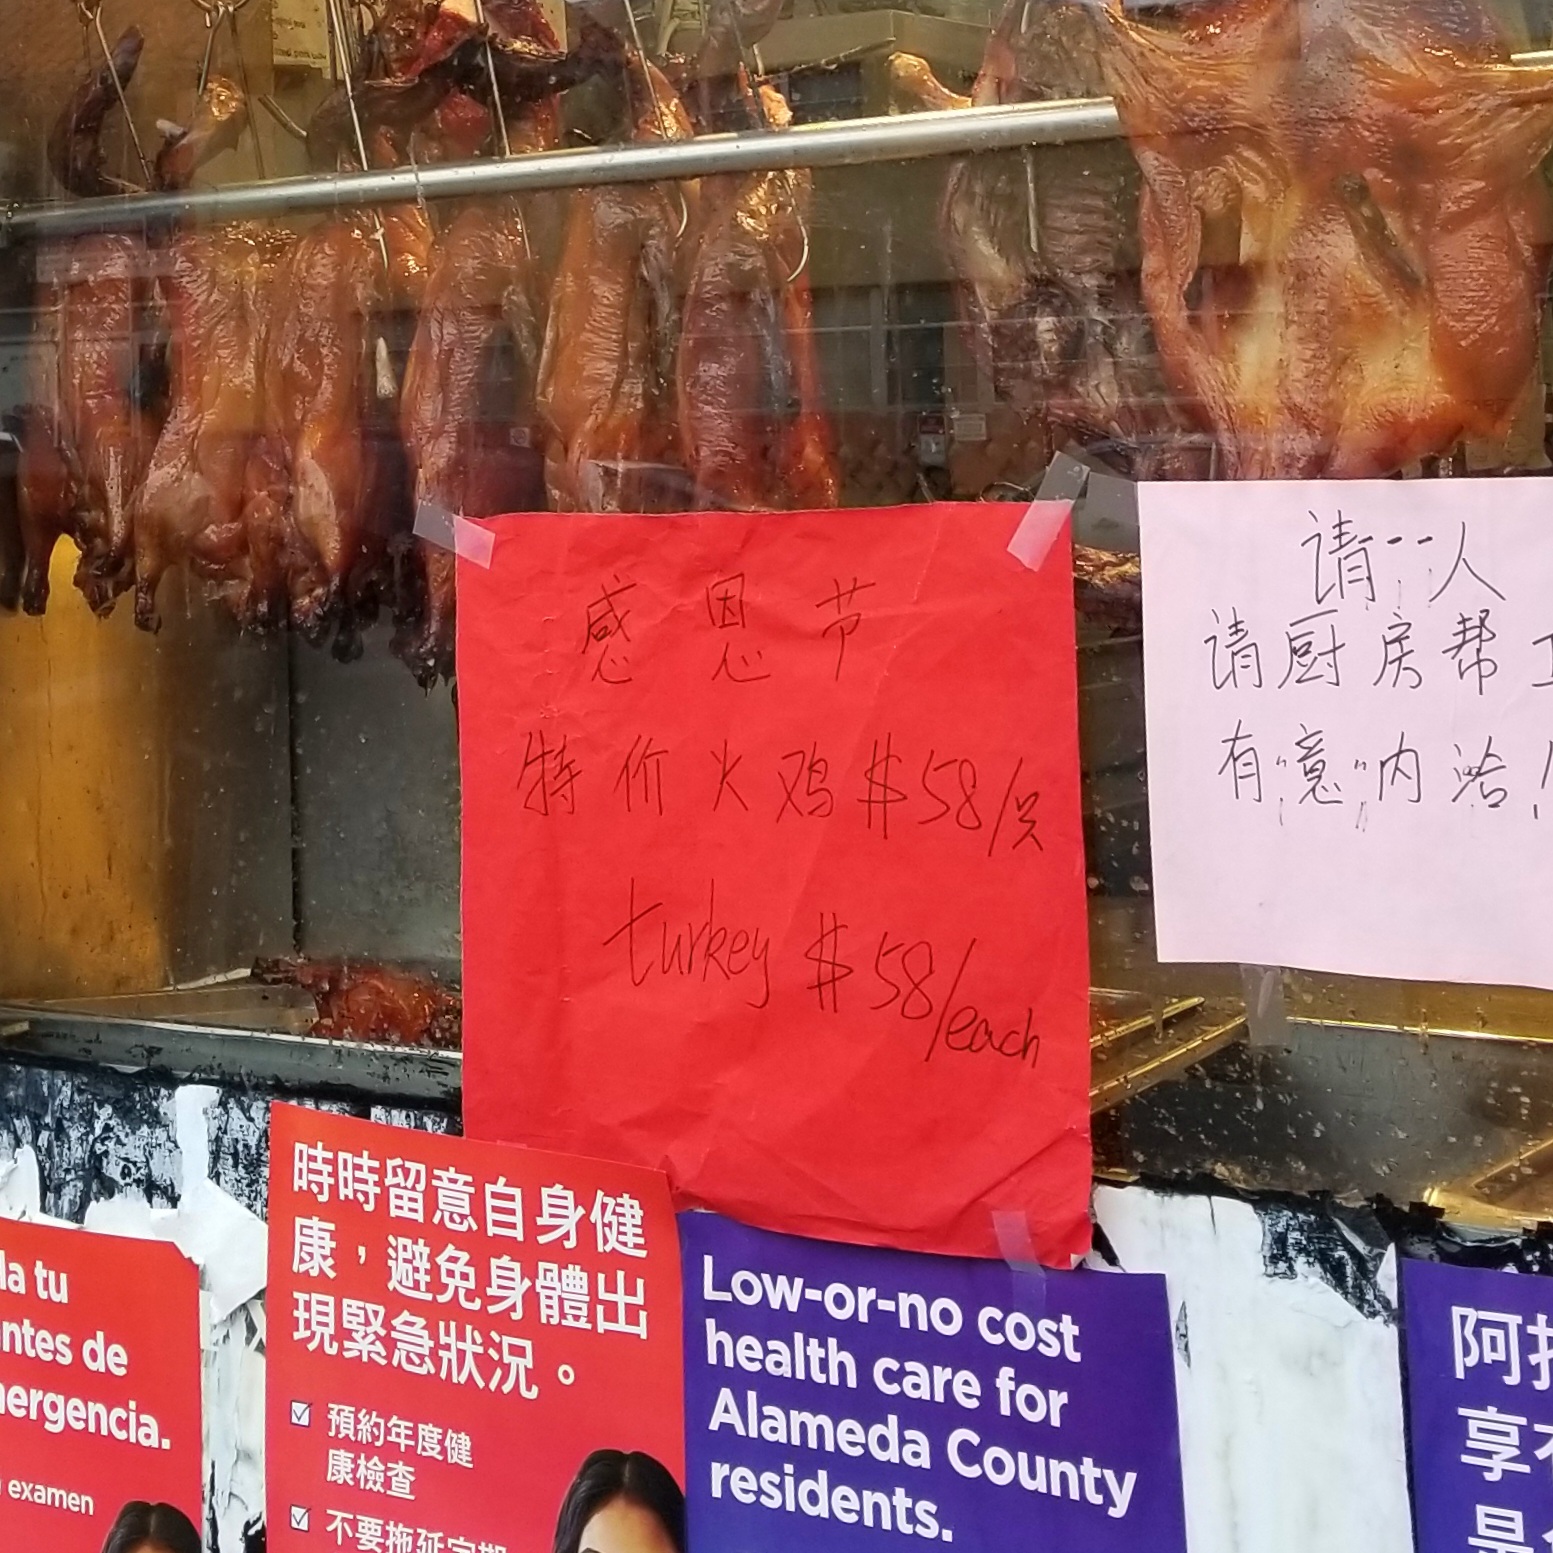 感恩节
特价火鸡$58/只
turkey $58/each
请一人
请厨房帮
有意内洽!
la tu
ntes de
ergencia.
examen
時時留意自身健
康，避免身體出
現緊急狀況。
預約年度健
康檢查
不要拖延定期
Low-or-no cost
health care for
Alameda County
residents.
阿
享
是